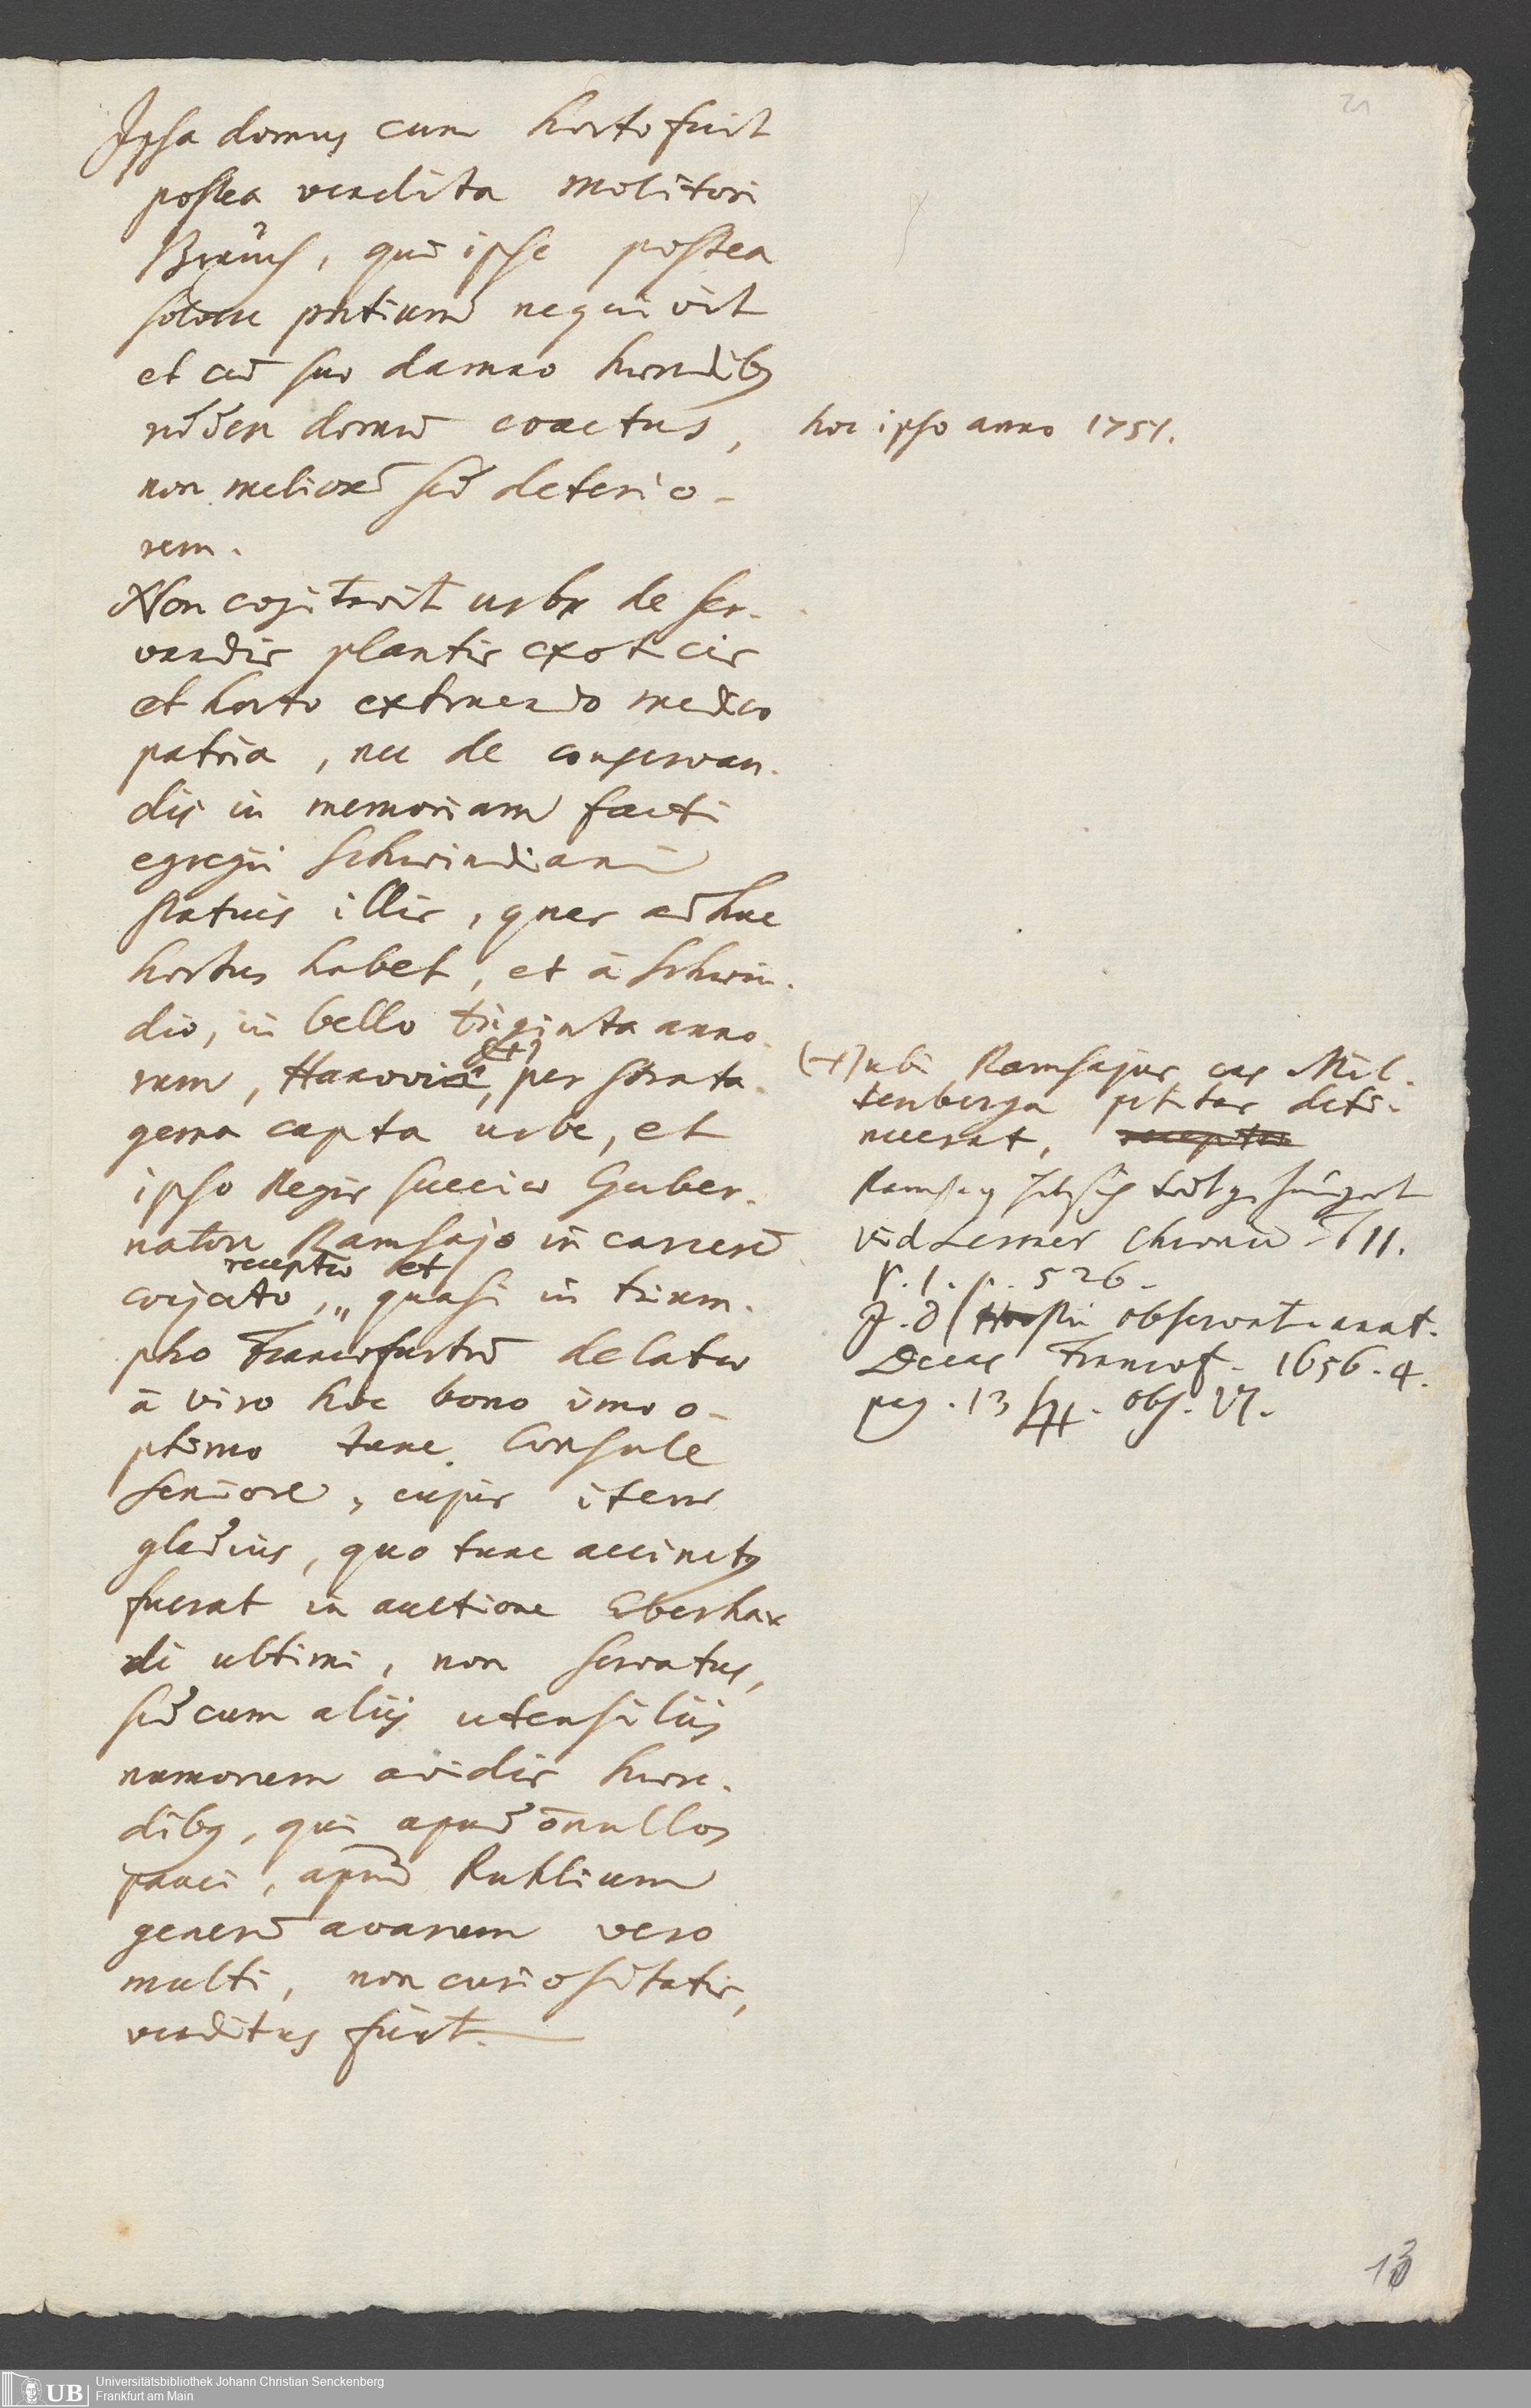 Ipsa domus cum horto fuit
postea vendita molitori
Brauns, qui ipse postea
solvere pretium nequivit
et cum suo damno heredibus
reddere domum coactus,
hoc ipso anno 1751.
non meliorem sed deterio-
rem.
Non cogitavit urbs de ser-
vandis plantis exoticis
et horto extruendo medico
patria, nec de conservan-
dis in memoriam facti
egregii Schwindiani
statuis illis, quas adhuc
hortus habet, et à Schwin-
dio, in bello triginta anno-
rum, Hanovia (+), per strata-
gema capta urbe, et
ipso Regis Sueciae Guber-
natore Ramsajo in carcerem
conjecto, recepto et quasi in trium-
pho Francofurtum delatis
à viro hoc bono imo o-
ptimo tunc Consule
seniore, cujus item
gladius, quo tunc accinctus
fuerat in auctione Eberhar-
di ultimi, non servatus,
sed cum aliis utensiliis
numorum avidis here-
dibus, qui apud nonnullos
pauci, apud Ruhlium
generum avarum vero
multi, non curiositatis,
venditus fuit.
(+) ubi Ramsajus eas Mil-
tenberga petitas deti-
nuerat, receptis
Ramsay
vid Lersner Chronic. T II.
P. 1. p. 526.
J. D. Horstii observat. anat.
Decas Francof. 1656. 4.
pag. 13 obs. VI.
13
UB Universitätsbibliothek Johann Christian Senckenberg
Frankfurt am Main